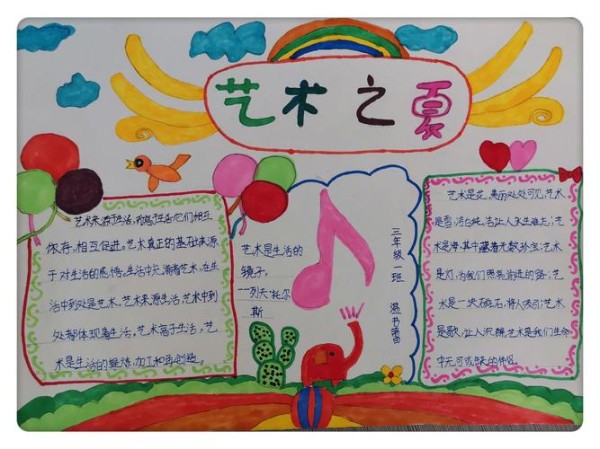 艺术之夏
艺术来源于生活,而高于生活,它们相互
依存,相互促进。艺术真正的基础来源
于对生活的感悟,生活中充满着艺术,在生
活中到处是艺术,艺术来源生活,艺术中到
处都体现着生活。艺术高于生活,艺
术是生活的提炼、加工和再创造。
艺术是生活的
镜子。
——列夫·托尔
斯
三年级一班
温书
艺术是花,美丽处处可见,艺术
是雪,洁白纯
术是海,其中藏着无数珍宝,艺术
是灯,为我们照亮前进的路,艺
术是一块石,将人吸引,艺术
是歌,让人沉醉,艺术是我们生命
中无可或缺的伴侣。